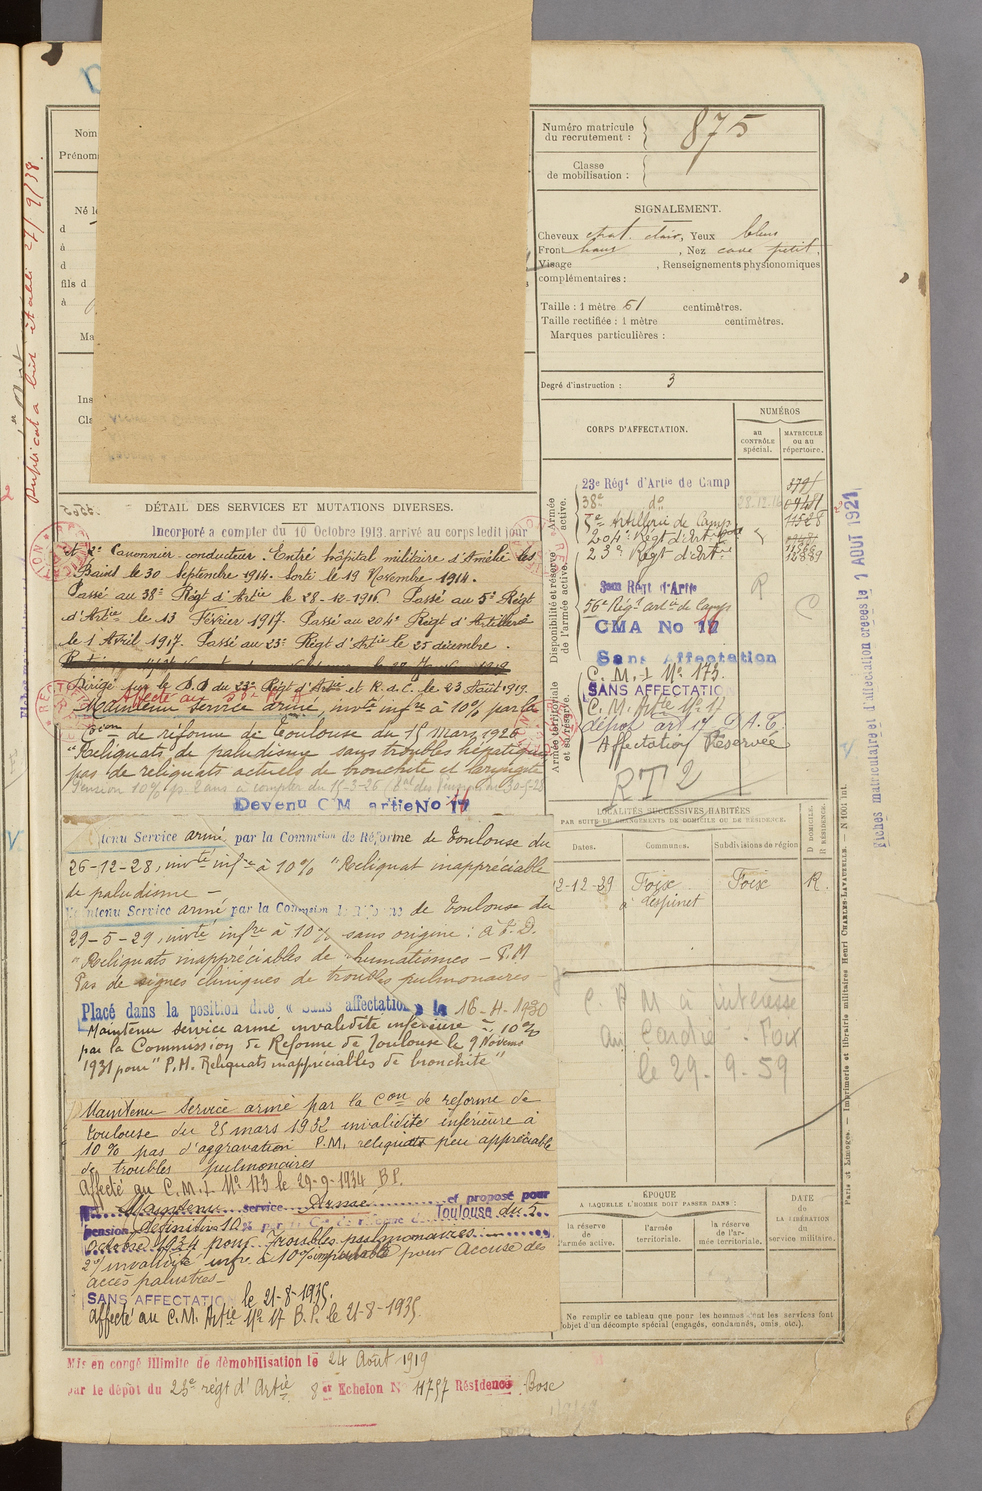 Nom
Prénom
Né le
d
à
d
fils d
à
Ma
Ins
Cl
Numéro matricule du recrutement : 875
Classe de mobilisation :
SIGNALEMENT.
Cheveux chat. clair, Yeux bleus
Front haut, Nez cave petit,
Visage , Renseignements physionomiques
complémentaires :
Taille : 1 mètre 61 centimètres.
Taille rectifiée : 1 mètre centimètres.
Marques particulières :
Degré d'instruction : 3
CORPS D'AFFECTATION.
NUMÉROS
au CONTRÔLE spécial.
MATRICULE ou au répertoire.
Armée active.
23e Régt d'Artie de Camp
38e do 28.12.16
5e Artillerie de Camp
204e Régt d'Artie
23e Régt d'Artie 12889
Disponibilité et réserve de l'armée active.
3eme Régt d'Artie
56e Régt artie de Camp
CMA No 17
Sans Affectation
Armée territoriale et sa réserve.
C. M. I No 173.
SANS AFFECTATION
C. M. Artie No 17
dépot art 17 D.A.T.
Affectation Réservée
RT2
DÉTAIL DES SERVICES ET MUTATIONS DIVERSES.
Incorporé a compter du 10 Octobre 1913. arrivé au corps ledit jour
et 2e Canonnier conducteur. Entré hôpital militaire d'Amélie les
Bains le 30 Septembre 1914. Sorti le 19 Novembre 1914.
Passé au 38e Régt d'Artie le 28-12-1916 Passé au 5e Régt
d'Artie le 13 Février 1917. Passé au 204e Régt d'Artillerie
le 1 Avril 1917. Passé au 23e Régt d'Artie le 25 décembre.
Dirigé sur le D.D du 23e Régt d'Artie et R.d.C. le 23 Août 1919.
Affecté au 3e R.A
Maintenu service armé, invté infre à 10% par la
Con de réforme de Toulouse du 15 Mars 1926
"Reliquats de paludisme sans troubles hépatiques
pas de reliquats actuels de bronchite et laryngite
Devenu C M artie No 17
tenu Service armé par la Commsion de Réforme de Toulouse du
26-12-28, invté infre à 10% "Reliquat inappréciable
de paludisme –
Maintenu Service armé par la Commsion de Réforme de Toulouse du
29-5-29, invté infre à 10% sans origine : à P.D.
"Reliquats inappréciables de rhumatismes – P.M
Pas de signes cliniques de troubles pulmonaires –
Placé dans la position dite « Sans affectation » le 16-4-1930
Maintenu service armé invalidité inférieure à 10%
par la Commission de Réforme de Toulouse le 9 Novembre
1931 pour "P.M. Reliquats inappréciables de bronchite"
Maintenu Service armé par la Con de réforme de
Toulouse du 25 mars 1932 invalidité inférieure à
10% pas d'aggravation P.M. reliquats peu appréciable
de troubles pulmonaires
Affecté au C.M.I. No 173 le 29-9-1934 B.P.
Maintenu service Armé et proposé pour
pension définitive 10% Toulouse du 5
octobre 1934 pour Troubles pulmonaires
2o/ invalidité infre à 10% imputable pour Accuse des
accès palustres –
SANS AFFECTATION le 21-8-1935.
Affecté au C.M. Artie No 17 B.P. le 21-8-1935.
LOCALITÉS SUCCESSIVES HABITÉES
PAR SUITE DE CHANGEMENTS DE DOMICILE OU DE RÉSIDENCE.
Dates.
Communes.
Subdivisions de région
D DOMICILE. R RÉSIDENCE.
2-12-29 Foix Foix R.
à Lespinet
C. P M à intéressé
Au Cardié. Foix
le 29. 9. 59
ÉPOQUE
A LAQUELLE L'HOMME DOIT PASSER DANS :
DATE de LA LIBÉRATION du service militaire.
la réserve de l'armée active.
l'armée territoriale.
la réserve de l'armée territoriale.
Ne remplir ce tableau que pour les hommes dont les services font
l'objet d'un décompte spécial (engagés, condamnés, omis, etc.).
Mis en congé illimité de démobilisation le 24 Août 1919
par le dépôt du 23e régt d'Artie 8e Echelon No 4757 Résidence Bosc
Duplicata livré établi 27/9/38.
Fiches matriculaire et d'affectation créées le 1 AOUT 1921
Paris et Limoges. — Imprimerie et librairie militaires Henri CHARLES-LAVAUZELLE. — N 1001 int.